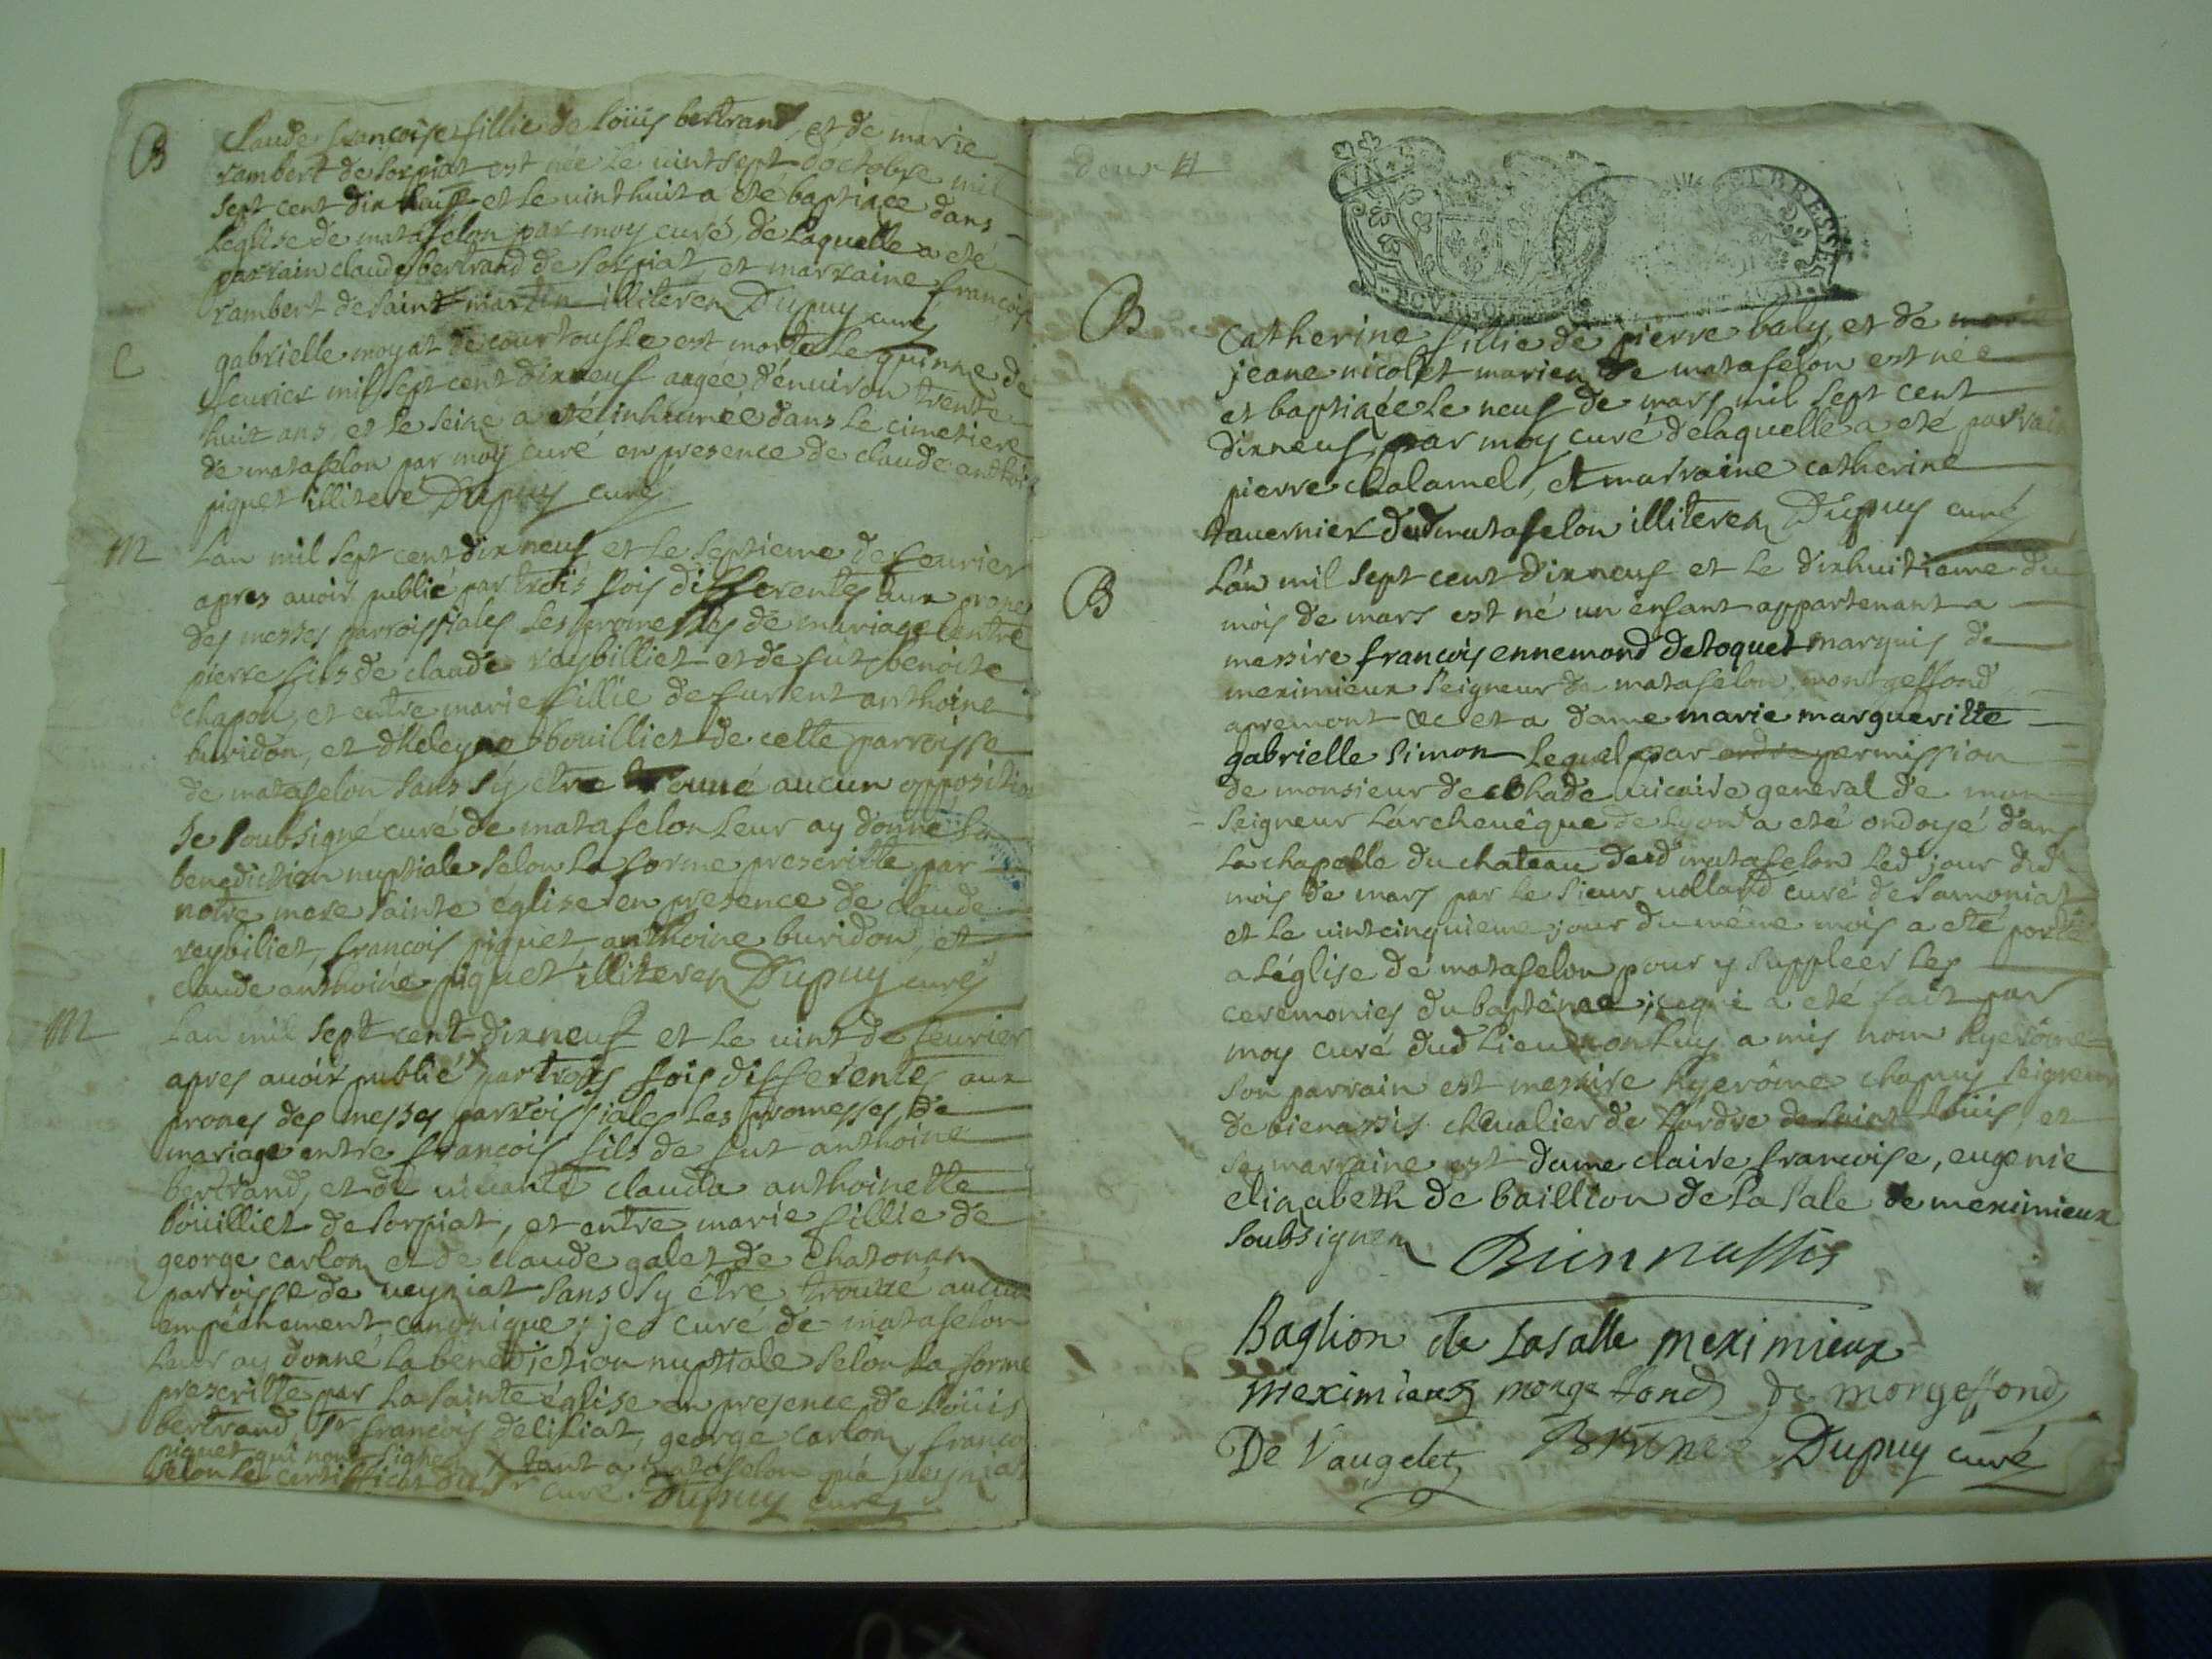 B
Claude francoise fillie de loüis bertrand, et de marie
rambert de sorpiat est née le uint sept doctobre mil
sept cent dix huit et le uint huit a eté baptizée dans
l'eglise de matafelon par moy curé, de laquelle a eté
parrain claude bertrand de sorpiat, et marraine francoise
rambert de saint martin illiterez Dupuy curé
C
gabrielle moyat de courtoufle est morte le quinze de
feurier mil sept cent dix neuf aagée d'enuiron trente
huit ans, et le seize a eté inhumée dans le cimetiere
de matafelon par moy curé en presence de claude anthoine
piquet illiteré Dupuy curé
M
Lan mil sept cent dix neuf et le septieme de feurier
apres auoir publié par trois fois differentes aux prones
des messes parroissiales les promesses de mariage entre
pierre fils de claude reybilliet et de fut benoite
chapon, et entre marie fillie de furent anthoine
buridon, et d'heleyne bouilliet de cette parroisse
de matafelon sans s'y etre trouué aucun opposition
Je soubsigné curé de matafelon leur ay donné la
benediction nuptiale selon la forme prescritte par
notre mere sainte église en presence de claude
reybiliet, francois piquet anthoine buridon, et
claude anthoine piquet illiterez Dupuy curé
M
Lan mil sept cent dix neuf et le uint de feurier
apres auoir publié x par trois fois differentes aux
prones des messes parroissiales les promesses de
mariage entre francois fils de fut anthoine
bertrand, et de uiuante clauda anthoinette
boüilliet de sorpiat, et entre marie fillie de
george carlon et de claude galet de chatonax
parroisse de ueyziat sans s'y être trouué aucun
empêchement canonique; je curé de matafelon
leur ay donné la benediction nuptiale selon la forme
prescritte par la sainte église en presence de loüis
bertrand, Sr francois delisiat, george carlon, francois
piquet qui n'ont signez x tant a matafelon qu'a ueyziat
selon le certifficat du Sr curé. Dupuy curé
deux
B
Catherine fillie de pierre baly, et de marie
jeane nicolet mariez de matafelon est née
et baptizée le neuf de mars mil sept cent
dix neuf, par moy curé de laquelle a eté parrain
pierre chalamel, et marraine catherine
tauernier dud matafelon illiterez Dupuy curé
B
L'an mil sept cent dix neuf et le dix huitieme du
mois de mars est né un enfant appartenant a
messire francois ennemond de toquet marquis de
meximieux seigneur de matafelon, montgeffond
apremont &c et a dame marie margueritte
gabrielle simon lequel par ordre permission
de monsieur de cohade uicaire general de mon
seigneur l'archeuêque de Lyon a eté ondoyé dans
la chapelle du chateau dud matafelon led jour dud
mois de mars par le sieur uollard curé de samoniat
et le uint cinquieme jour du même mois a eté porté
a l'église de matafelon pour y suppleer les
ceremonies du baptême; ce qui a eté fait par
moy curé dud lieu, on luy a mis nom hyerôme
son parrain est messire hyerôme chapuy seigneur
de bienassis cheualier de l'ordre de saint loüis, et
sa marraine est dame claire francoise, eugenie
elizabeth de baillion de la sale de meximieux
soubsignez Biennassis
Baglion de Lasalle meximieux
meximieux morgeffond de morgeffond
De Vaugelet Brunet Dupuy curé